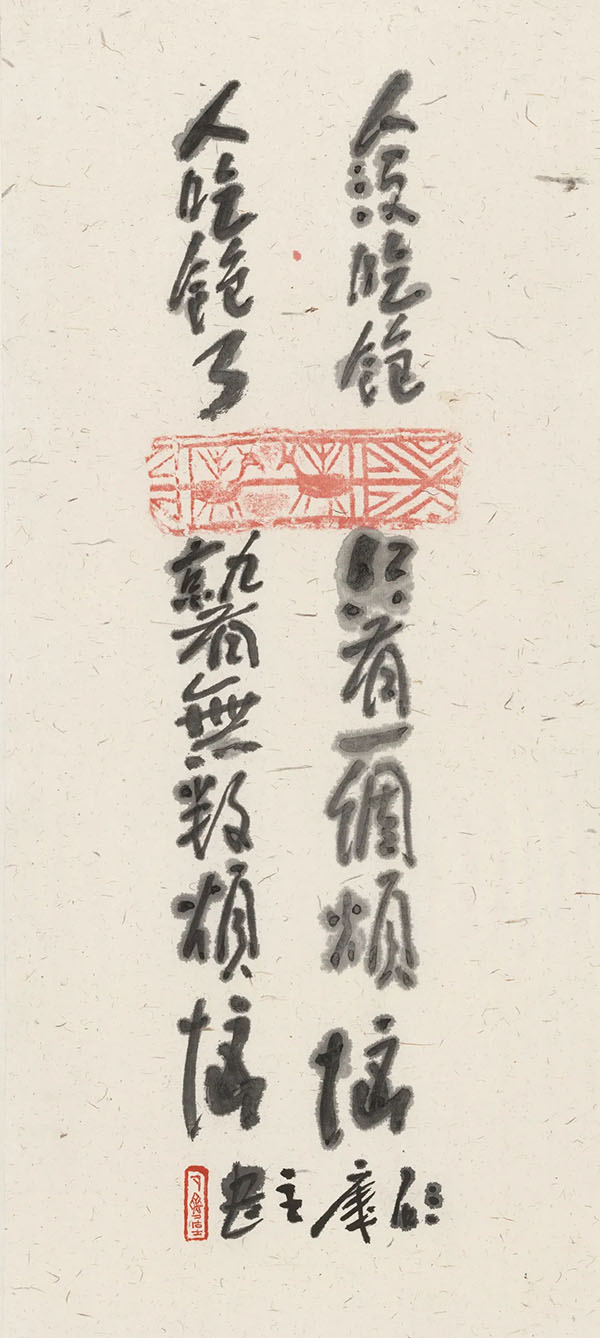 人没吃飽
只有一個煩惱
人吃飽了
就有無数煩惱
庵主書